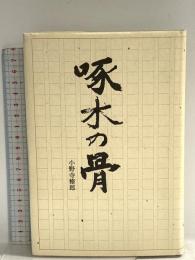 啄木の骨
小野寺脩郎